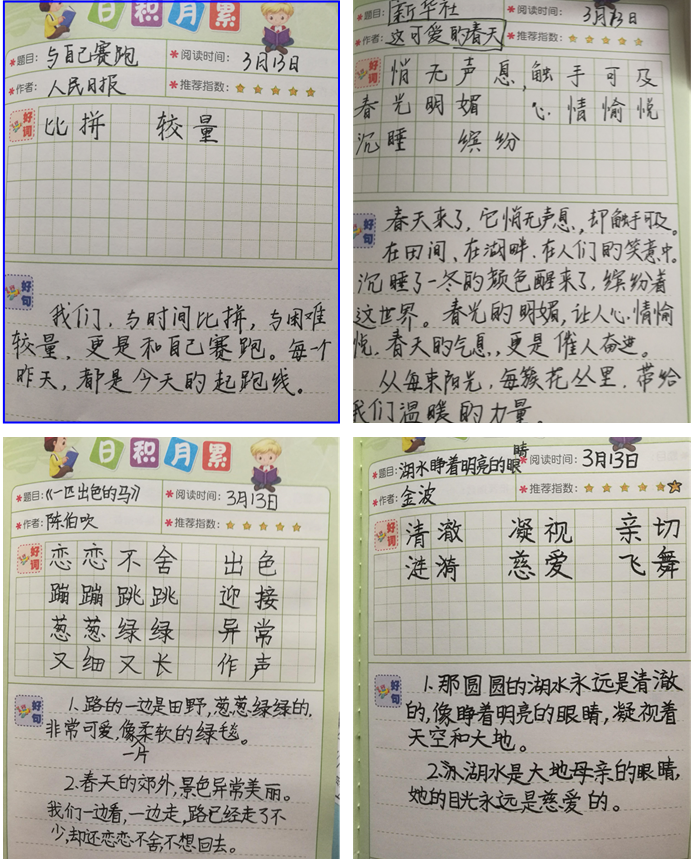 日积月累
题目：与自己赛跑 阅读时间：3月13日
作者：人民日报 推荐指数：
好词
比拼 较量
好句
我们，与时间比拼，与困难
较量，更是和自己赛跑。每一个
昨天，都是今天的起跑线。
题目：新华社 阅读时间：3月13日
作者：这可爱的春天 推荐指数：
好词
悄无声息，触手可及
春光明媚 心情愉悦
沉睡 缤纷
好句
春天来了，它悄无声息，却触手可及。
在田间、在湖畔、在人们的笑意中。
沉睡了一冬的颜色醒来了，缤纷着
这世界。春光的明媚，让人心情愉
悦，春天的气息，更是催人奋进。
从每束阳光，每簇花丛里，带给
我们温暖的力量。
日积月累
题目：《一匹出色的马》 阅读时间：3月13日
作者：陈伯吹 推荐指数：
好词
恋恋不舍 出色
蹦蹦跳跳 迎接
葱葱绿绿 异常
又细又长 作声
好句
1.路的一边是田野，葱葱绿绿的，
非常可爱，像柔软的绿毯。
一片
2.春天的郊外，景色异常美丽。
我们一边看，一边走，路已经走了不
少，却还恋恋不舍，不想回去。
题目：湖水睁着明亮的眼睛 阅读时间：3月13日
作者：金波 推荐指数：
好词
清澈 凝视 亲切
涟漪 慈爱 飞舞
好句
1.那圆圆的湖水永远是清澈
的，像睁着明亮的眼睛，凝视着
天空和大地。
2.湖水是大地母亲的眼睛，
她的目光永远是慈爱的。